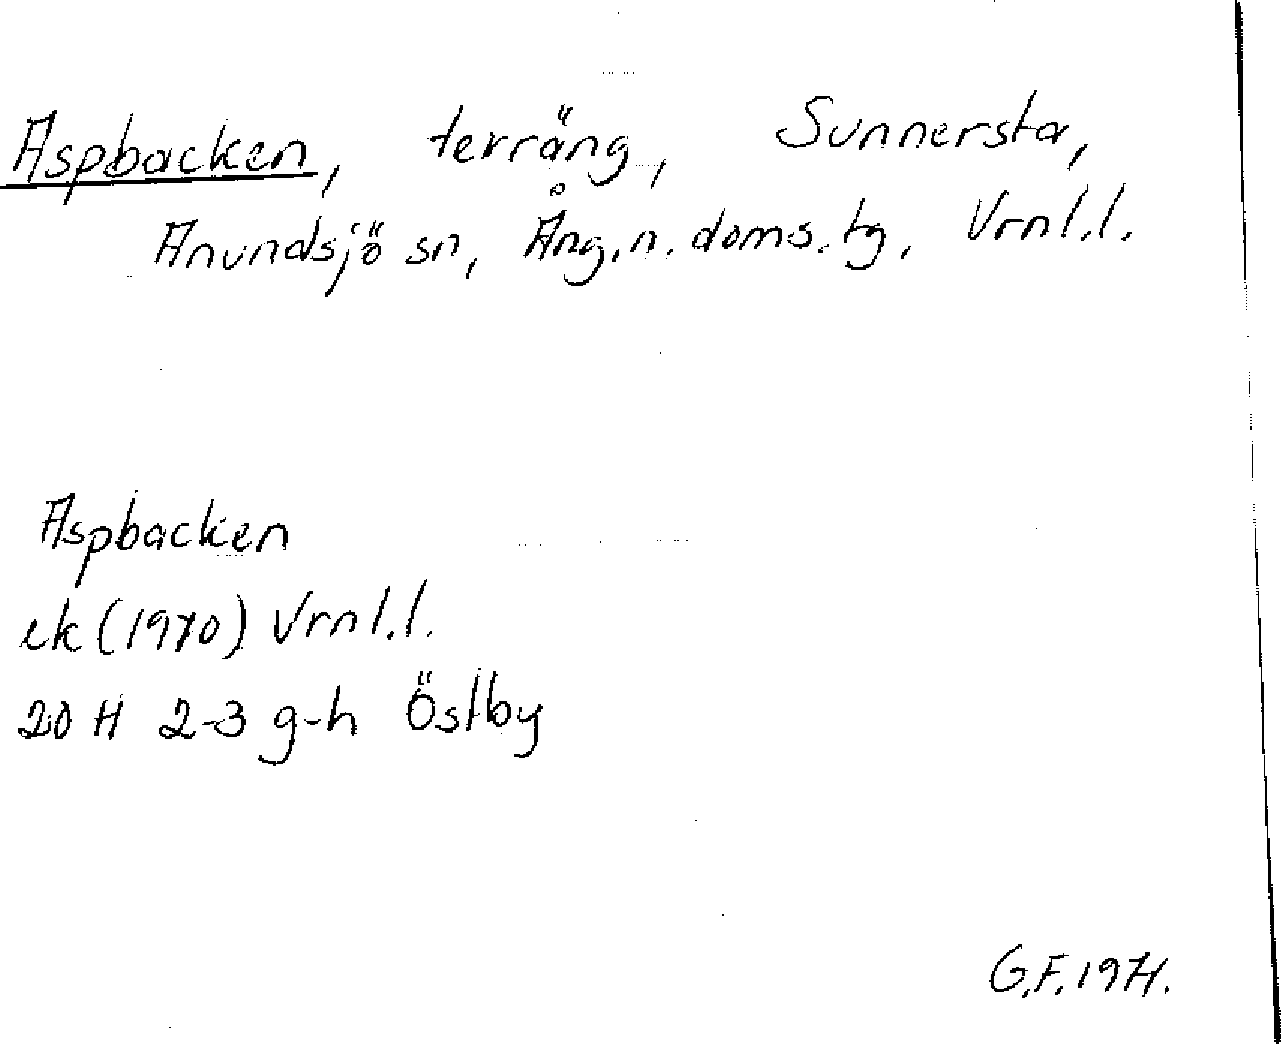 Aspbacken, terräng, Sunnersta,
Anundsjö sn, Ång.n.doms.tg, Vrnl.l.
Aspbacken
ek (1970) Vrnl.l.
20 H 2-3 g-h Östby
G.F. 1971.